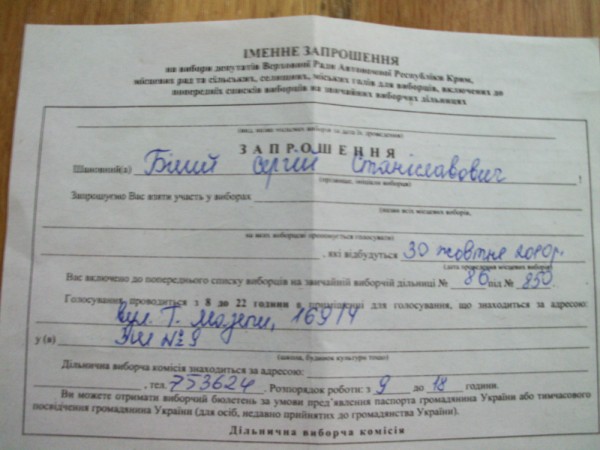 ІМЕННЕ ЗАПРОШЕННЯ
на вибори депутатів Верховної Ради Автономної Республіки Крим,
місцевих рад та сільських, селищних, міських голів для виборців, включених до
попередніх списків виборців на звичайних виборчих дільницях
(вид, назва місцевих виборів та дата їх проведення)
ЗАПРОШЕННЯ
Шановний(а) Білий Сергій Станіславович !
(прізвище, ініціали виборця)
Запрошуємо Вас взяти участь у виборах
(назва всіх місцевих виборів,
на яких виборцеві пропонується голосувати)
, які відбудуться 30 жовтня 2010р.
(дата проведення місцевих виборів)
Вас включено до попереднього списку виборців на звичайній виборчій дільниці № 86 під № 850
Голосування проводиться з 8 до 22 години в приміщенні для голосування, що знаходиться за адресою:
вул. Т. Мазепи, 169/4
у (в) №9
(школа, будинок культури тощо)
Дільнична виборча комісія знаходиться за адресою:
, тел. 753624. Розпорядок роботи: з 9 до 18 години.
Ви можете отримати виборчий бюлетень за умови пред’явлення паспорта громадянина України або тимчасового
посвідчення громадянина України (для осіб, недавно прийнятих до громадянства України).
Дільнична виборча комісія